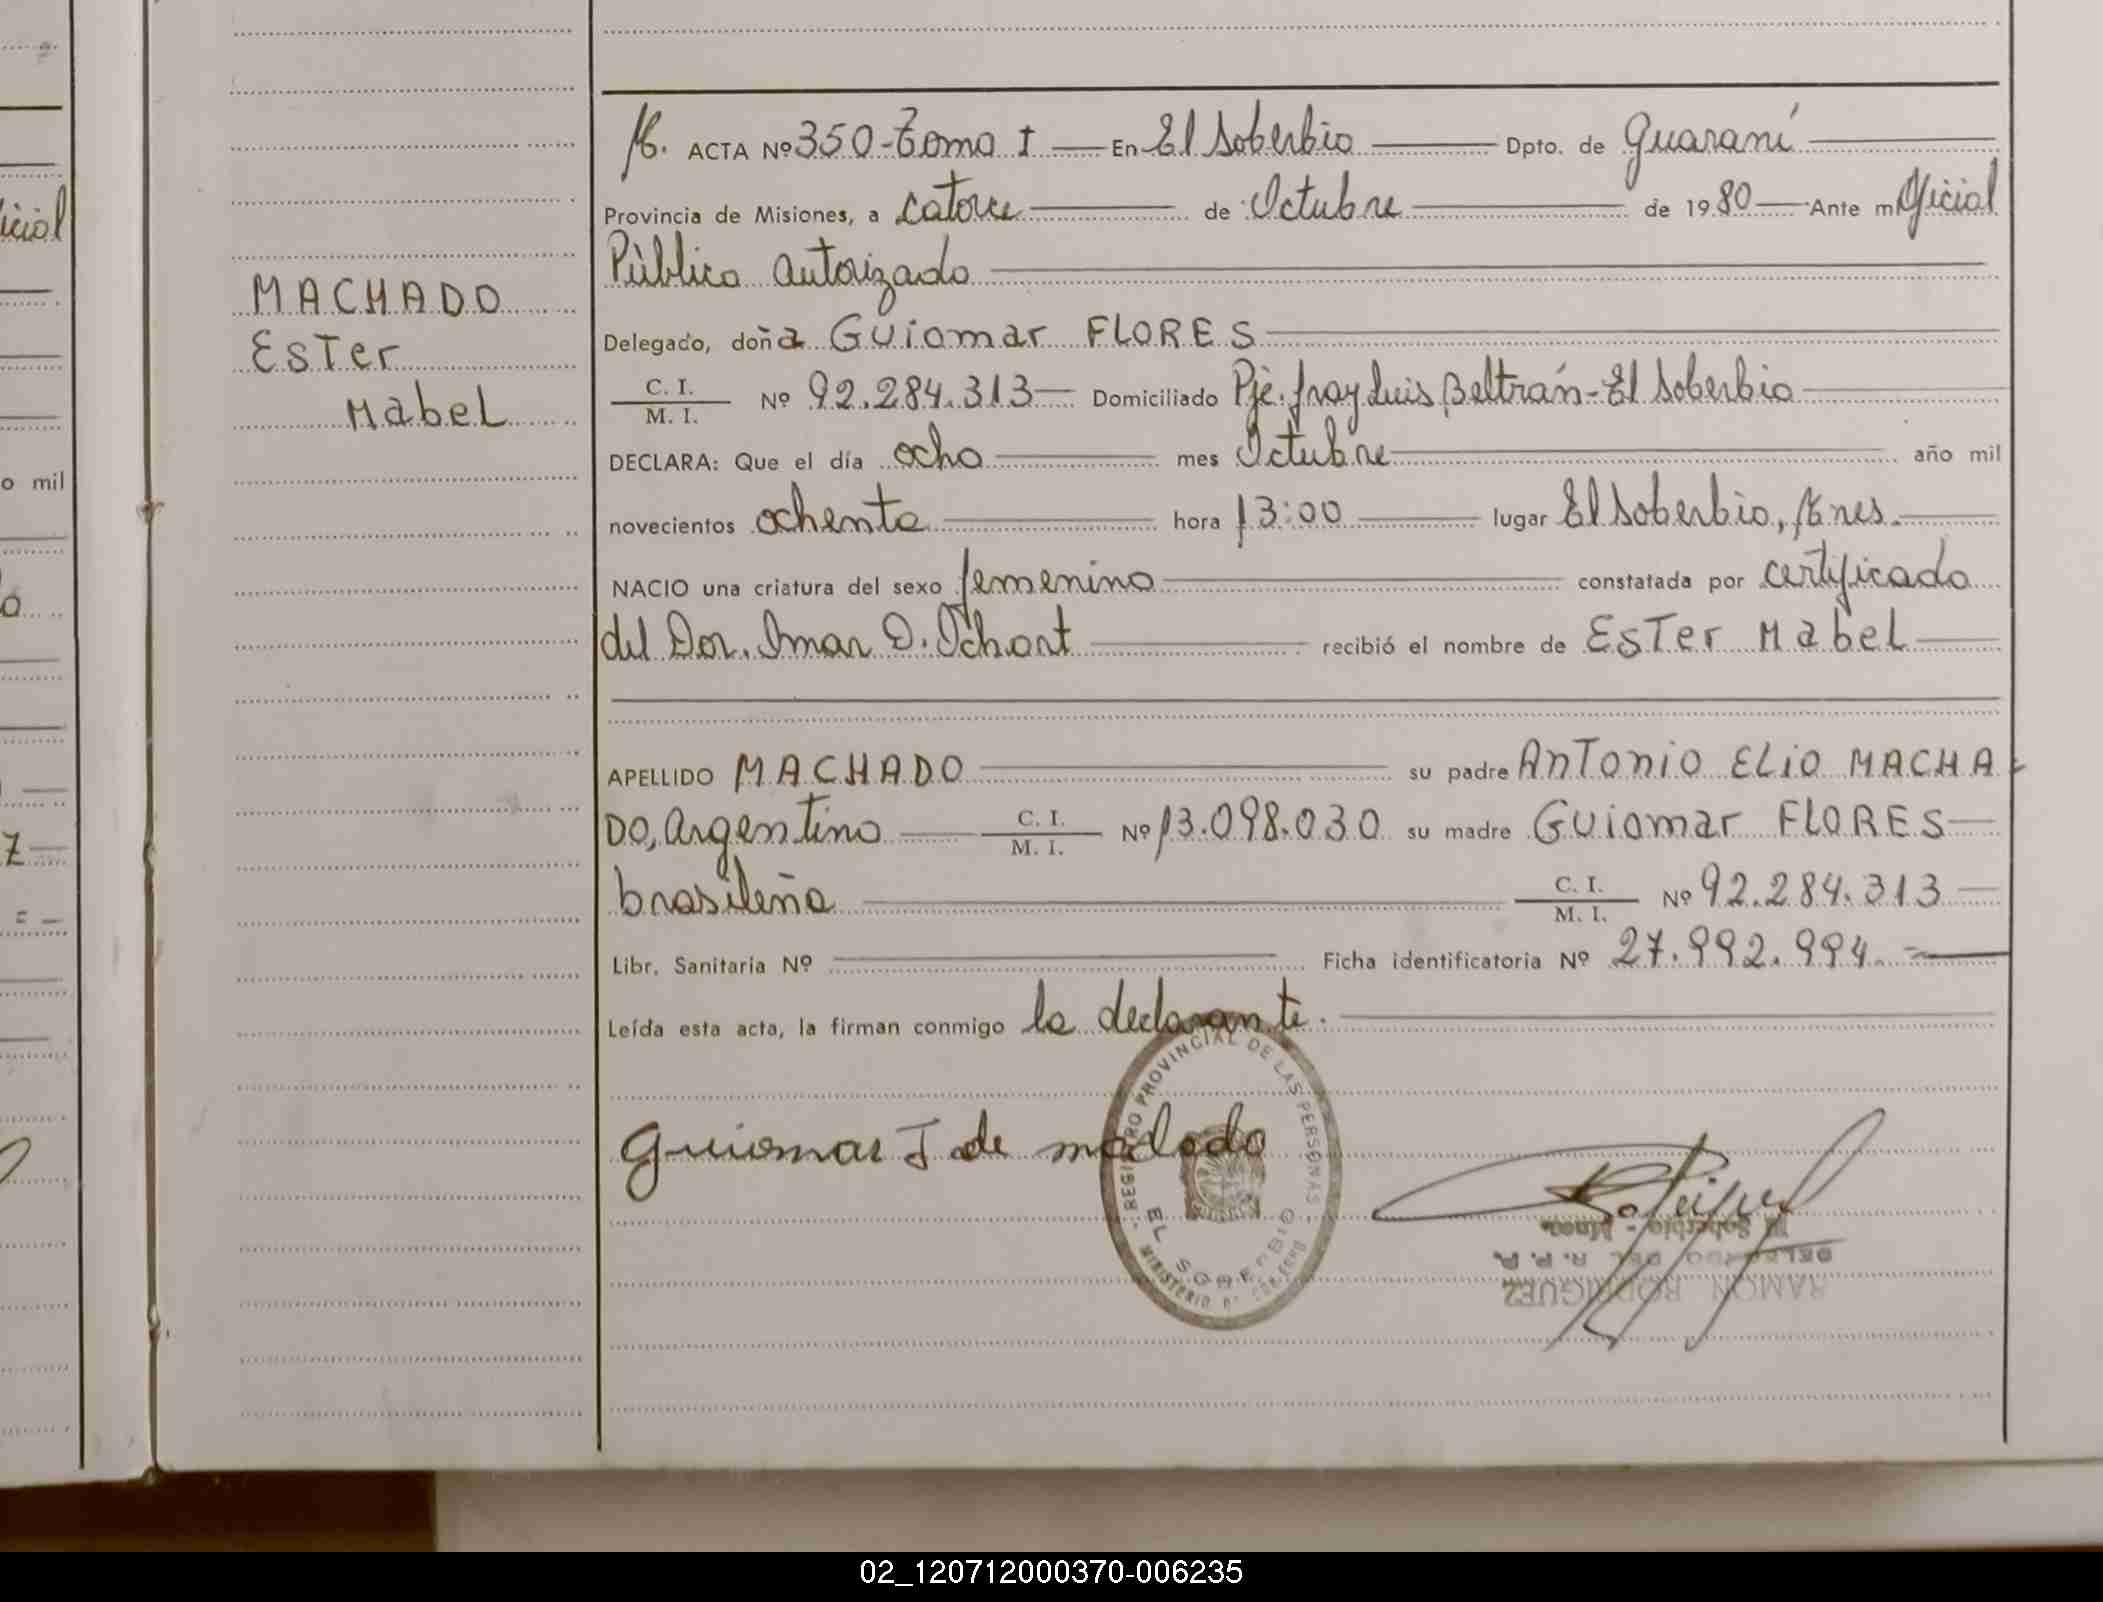 ACTA Nº 350-Tomo I — En El Soberbio — Dpto. de Guaraní
Provincia de Misiones, a catorce — de Octubre — de 1980 — Ante mí Oficial
Público autorizado
MACHADO
Ester
Mabel
Delegado, doña Guiomar FLORES
C. I.
M. I. Nº 92.284.313 — Domiciliado Pje. fray Luis Beltrán - El Soberbio
DECLARA: Que el día ocho — mes Octubre — año mil
novecientos ochenta — hora 13:00 — lugar El Soberbio, Mnes.
NACIO una criatura del sexo femenino — constatada por certificado
del Dor. Omar O. — recibió el nombre de Ester Mabel
APELLIDO MACHADO — su padre Antonio ELIO MACHA-
DO, argentino — C. I.
M. I. Nº 13.098.030 su madre Guiomar FLORES —
brasileña — C. I.
M. I. Nº 92.284.313 —
Libr. Sanitaria Nº — Ficha identificatoria Nº 27.992.994. —
Leída esta acta, la firman conmigo la declarante.
REGISTRO PROVINCIAL DE LAS PERSONAS
EL SOBERBIO
MINISTERIO DE GOBIERNO
Guiomar de
El Soberbio - Mnes.
DELEGADO DEL R. P. P.
RAMON RODRIGUEZ
icial
o mil
02_120712000370-006235